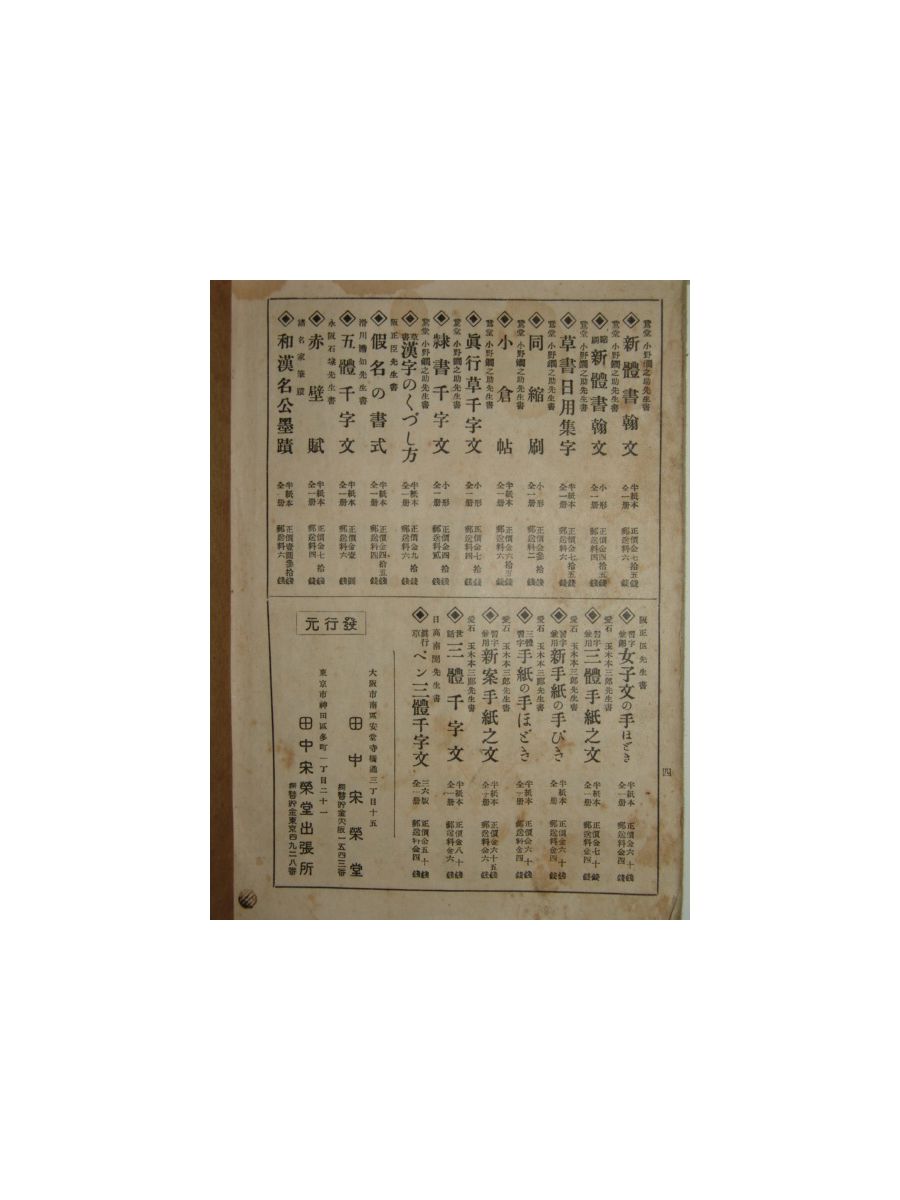 鵞堂 小野鐗之助先生書
新體書翰文
半紙本
全一册
正價金七拾五錢
郵送料六錢
鵞堂 小野鐗之助先生書
縮刷 新體書翰文
小形
全一册
正價金四拾五錢
郵送料四錢
鵞堂 小野鐗之助先生書
草書日用集字
半紙本
全一册
正價金七拾五錢
郵送料六錢
鵞堂 小野鐗之助先生書
同縮刷
小形
全一册
正價金參拾錢
郵送料二錢
鵞堂 小野鐗之助先生書
小倉帖
半紙本
全一册
正價金六拾五錢
郵送料六錢
鵞堂 小野鐗之助先生書
眞行草千字文
小形
全一册
正價金七拾錢
郵送料四錢
鵞堂 小野鐗之助先生書
隸書千字文
小形
全一册
正價金四拾錢
郵送料貳錢
鵞堂 小野鐗之助先生書
草書 漢字のくづし方
半紙本
全一册
正價金九拾錢
郵送料六錢
阪正臣先生書
假名の書式
半紙本
全一册
正價金四拾五錢
郵送料四錢
滑川澹如先生書
五體千字文
半紙本
全一册
正價金壹圓
郵送料六錢
永阪石埭先生書
赤壁賦
半紙本
全一册
正價金七拾錢
郵送料四錢
諸名家筆蹟
和漢名公墨蹟
半紙本
全一册
正價金壹圓參拾錢
郵送料六錢
四
阪正臣先生書
習字兼用 女子文の手ほどき
半紙本
全一册
正價金六十錢
郵送料金四錢
愛石 玉木本三郎先生書
習字兼用 三體手紙之文
半紙本
全一册
正價金七十錢
郵送料金四錢
愛石 玉木本三郎先生書
習字兼用 新手紙の手びき
半紙本
全一册
正價金六十錢
郵送料金四錢
愛石 玉木本三郎先生書
三體習字 手紙の手ほどき
半紙本
全一册
正價金六十錢
郵送料金四錢
愛石 玉木本三郎先生書
習字兼用 新案手紙之文
半紙本
全一册
正價金六十五錢
郵送料金六錢
愛石 玉木本三郎先生書
世話 三體千字文
半紙本
全一册
正價金八十錢
郵送料金六錢
日高南閣先生書
眞行草 ペン三體千字文
三六版
全一册
正價金五十錢
郵送料金四錢
發行元
大阪市南區安堂寺橋通三丁目十五
田中宋榮堂
振替貯金大阪一五四三番
東京市神田區多町一丁目二十一
田中宋榮堂出張所
振替貯金東京四九二八番